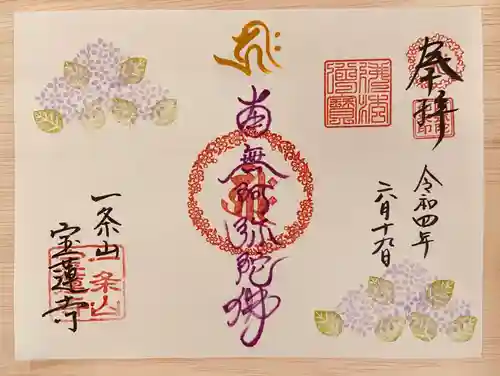 奉拝
令和四年
六月十九日
南無阿弥陀佛
一条山
宝蓮寺
一条山